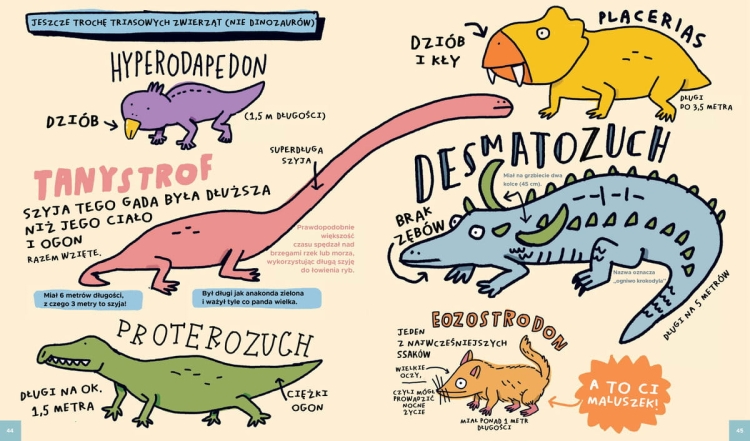 JESZCZE TROCHĘ TRIASOWYCH ZWIERZĄT (NIE DINOZAURÓW)
HYPERODAPEDON
DZIÓB
(1,5 M DŁUGOŚCI)
TANYSTROF
SZYJA TEGO GADA BYŁA DŁUŻSZA
NIŻ JEGO CIAŁO
I OGON
RAZEM WZIĘTE.
SUPERDŁUGA
SZYJA
Prawdopodobnie
większość
czasu spędzał nad
brzegami rzek lub morza,
wykorzystując długą szyję
do łowienia ryb.
Miał 6 metrów długości,
z czego 3 metry to szyja!
Był długi jak anakonda zielona
i ważył tyle co panda wielka.
PROTEROZUCH
DŁUGI NA OK.
1,5 METRA
CIĘŻKI
OGON
44
PLACERIAS
DZIÓB
I KŁY
DŁUGI
DO 3,5 METRA
DESMATOZUCH
Miał na grzbiecie dwa
kolce (45 cm).
BRAK
ZĘBÓW
Nazwa oznacza
„ogniwo krokodyla”
DŁUGI NA 5 METRÓW
EOZOSTRODON
JEDEN
Z NAJWCZEŚNIEJSZYCH
SSAKÓW
WIELKIE
OCZY,
CZYLI MÓGŁ
PROWADZIĆ
NOCNE
ŻYCIE
MIAŁ PONAD 1 METR
DŁUGOŚCI
A TO CI
MALUSZEK!
45